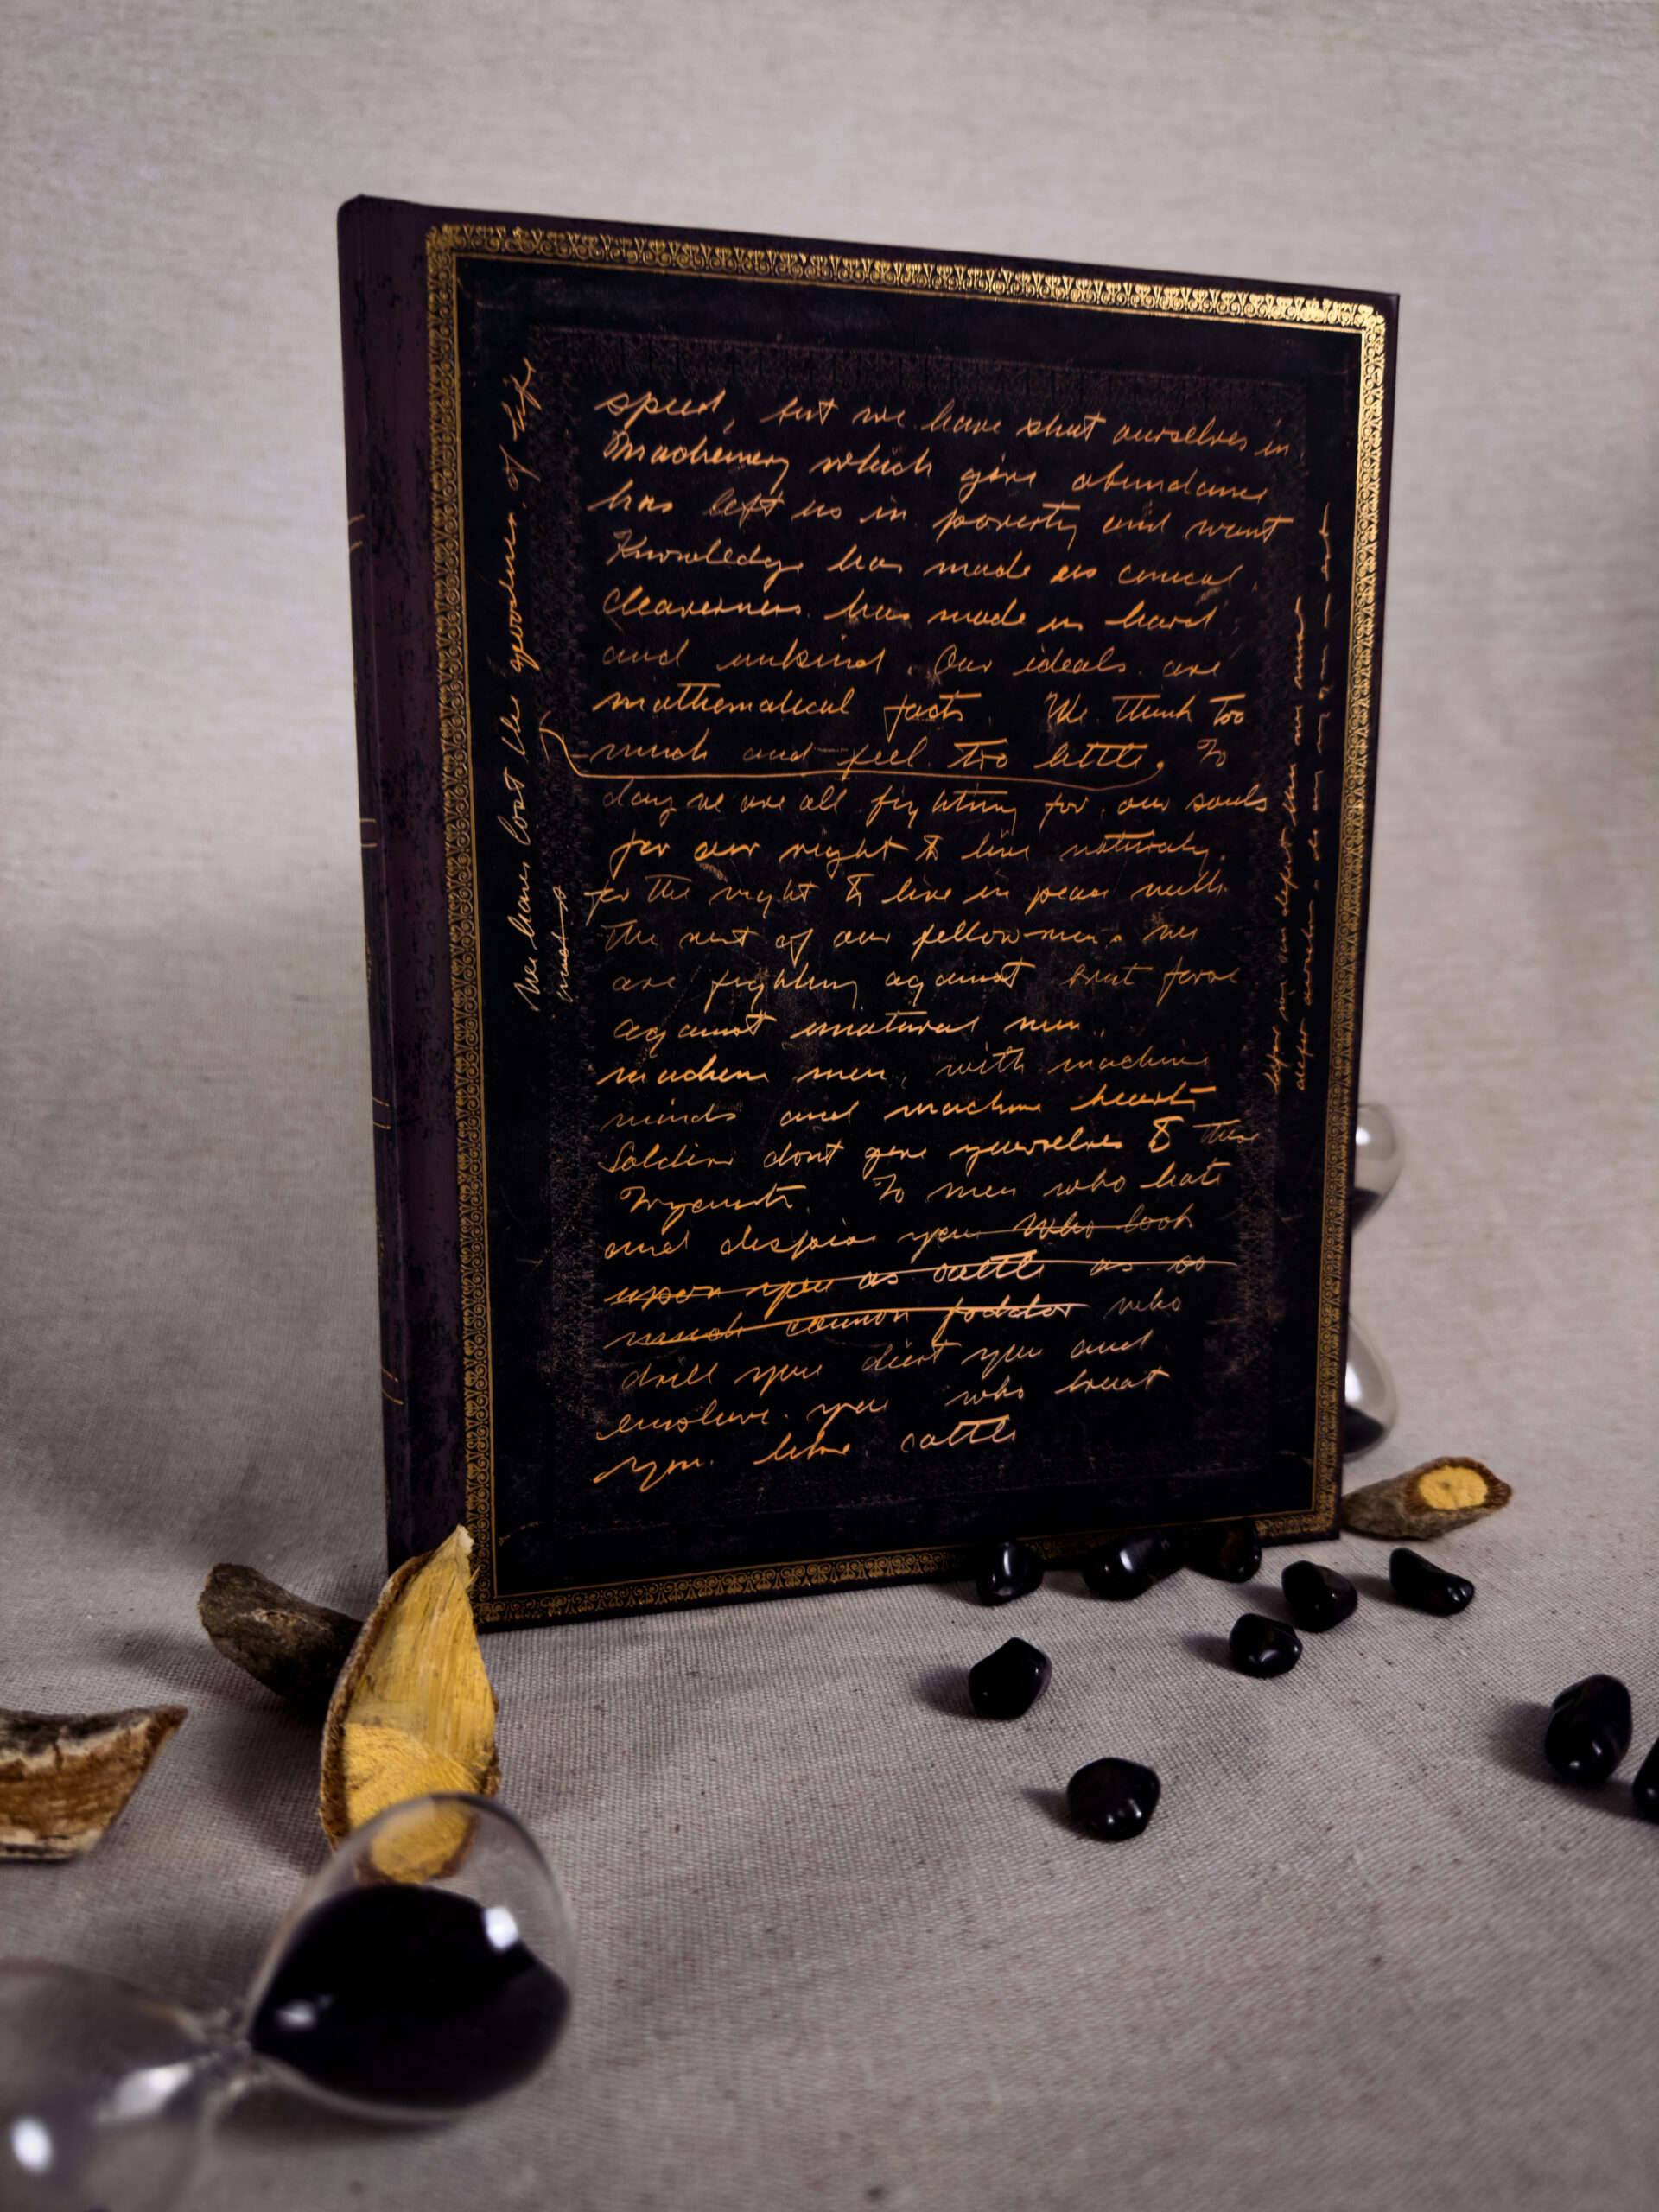 speed, but we have shut ourselves in
Machinery which give abundance
has left us in poverty and want
Knowledge has made us cinical,
cleaverness has made us hard
and unkind. Our ideals are
mathematical facts. We think too
much and feel too little. To
day we are all fighting for our souls
for our right to live naturaly,
for the right to live in peace with
the rest of our fellow-men. We
are fighting against brut force
against unatural men,
machine men, with machine
minds and machine hearts
Soldiers dont give yourselves to these
To men who hate
and despise you who look
upon you as cattle as so
much cannon fodder who
drill you diert you and
enslave you who treat
you like cattle
We have lost the goodness of life